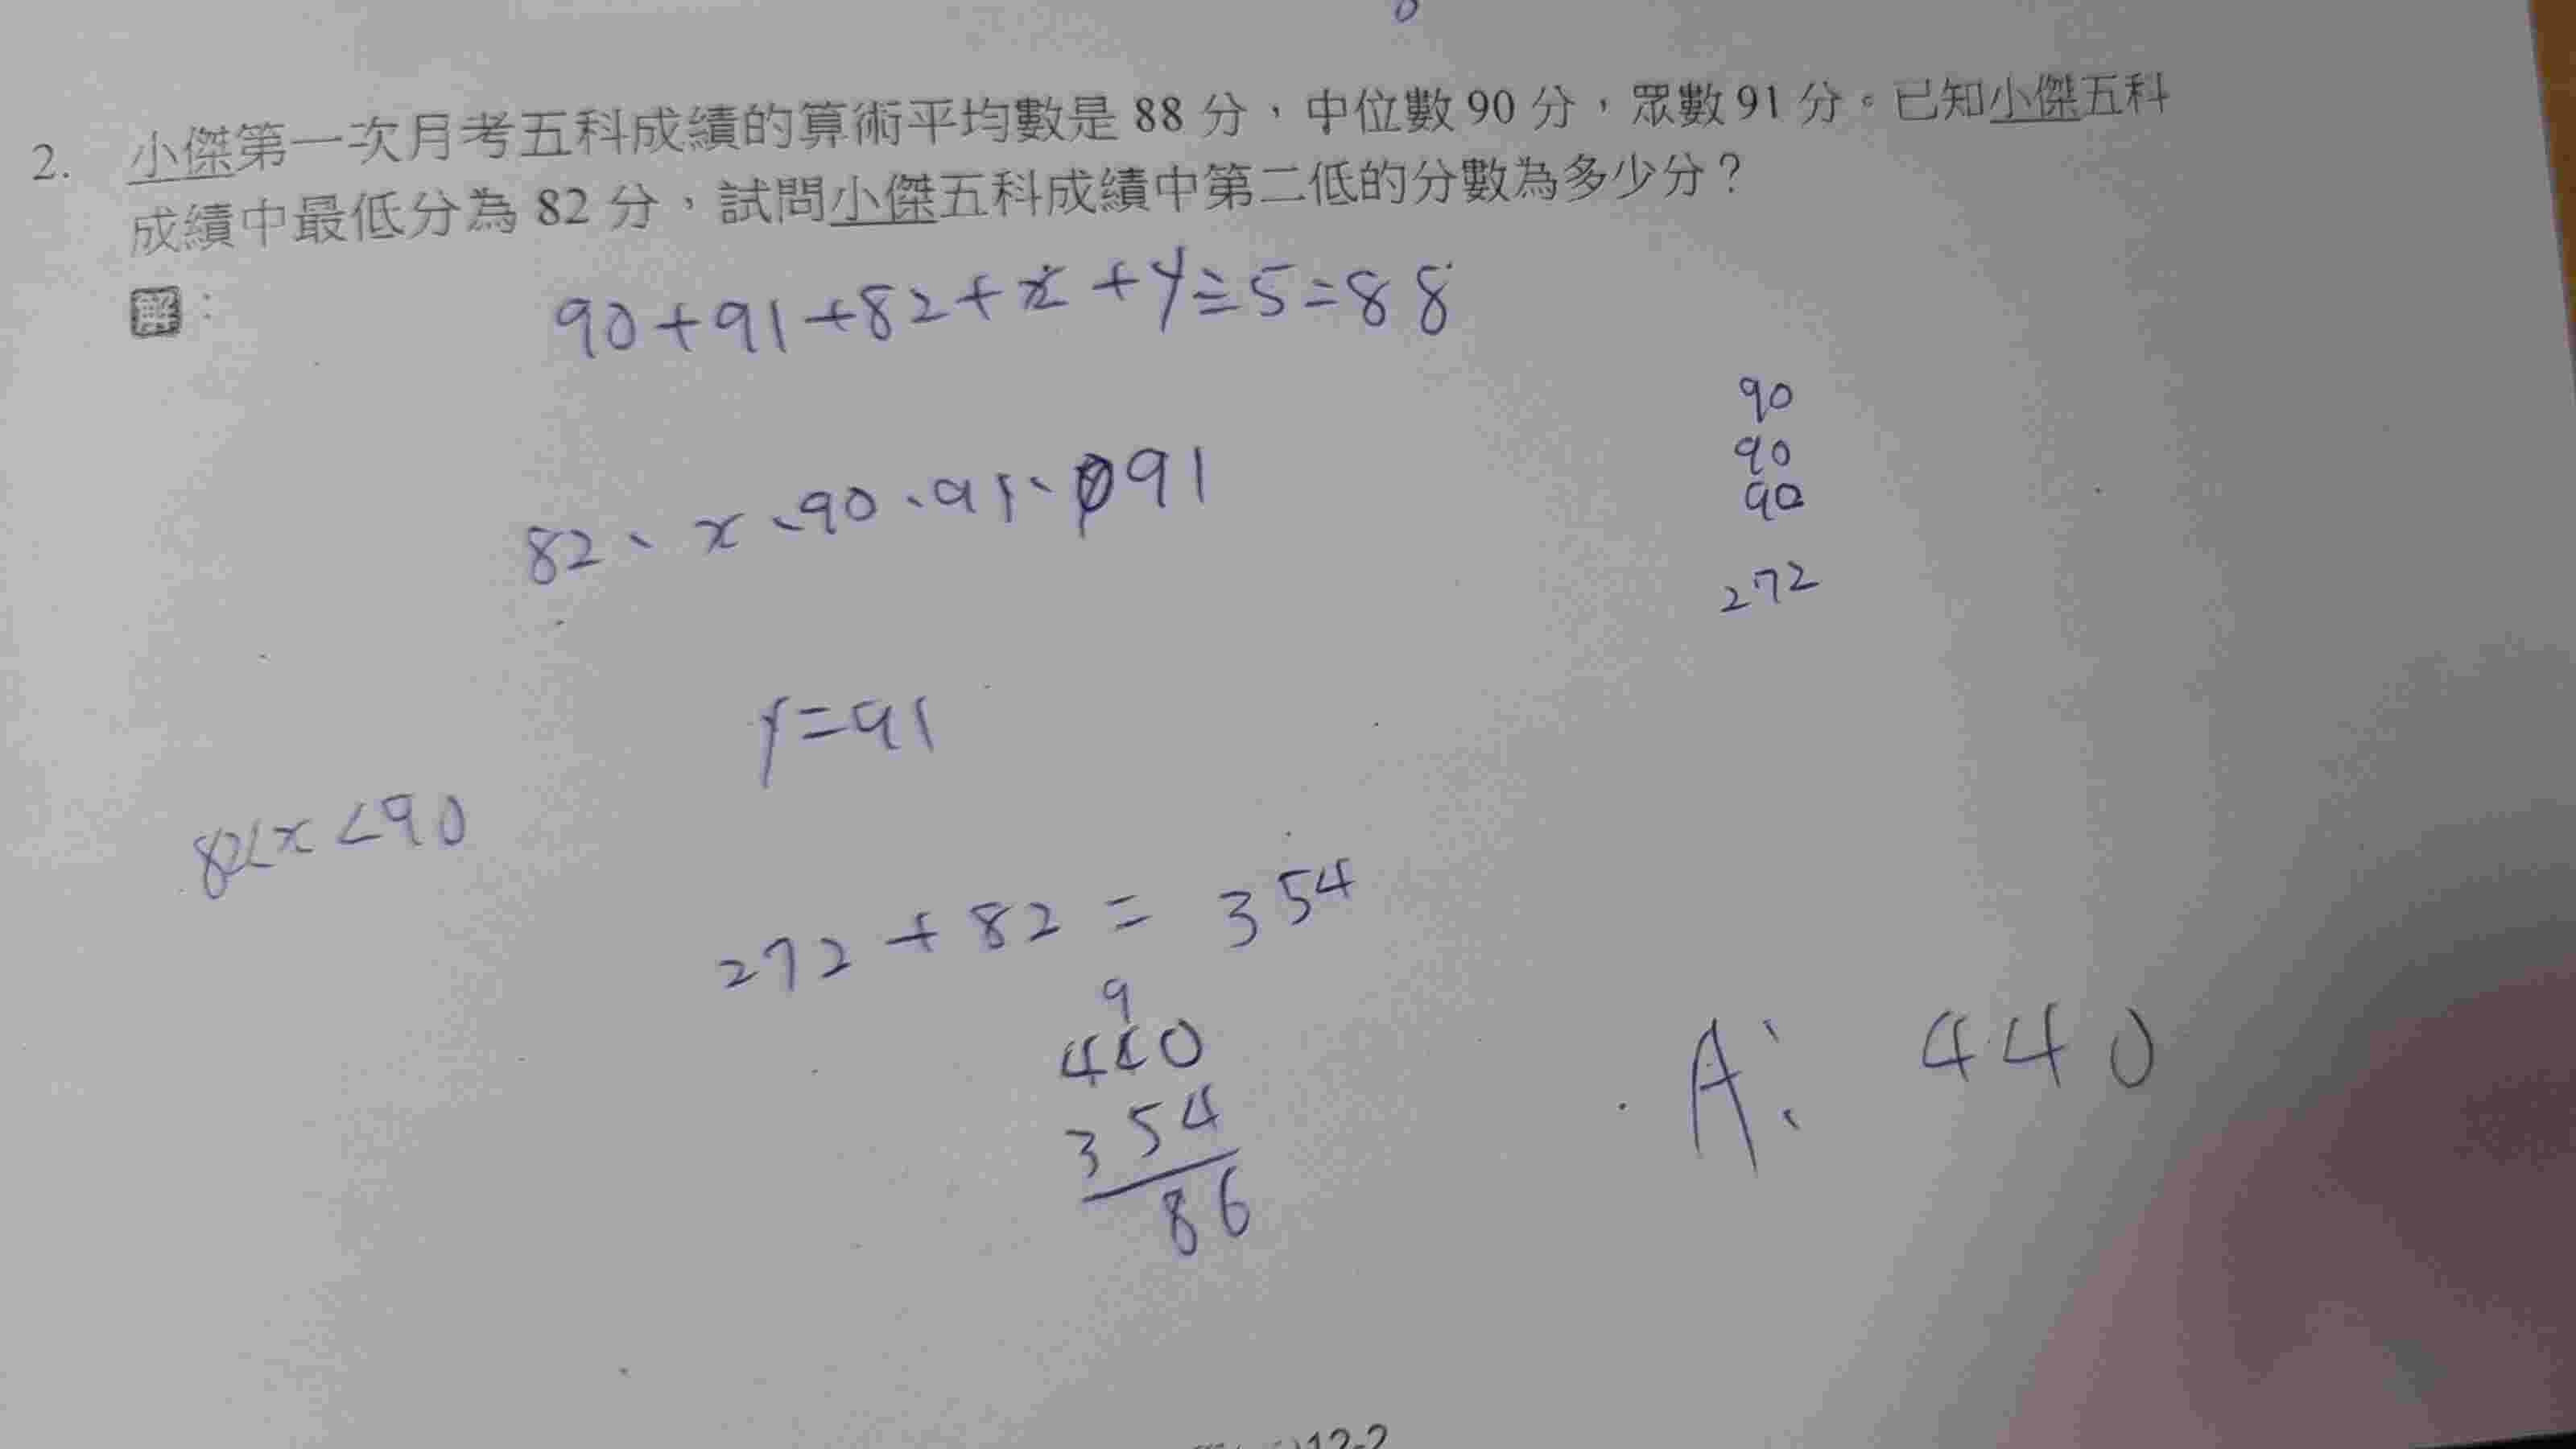 2. 小傑第一次月考五科成績的算術平均數是 88 分，中位數 90 分，眾數 91 分。已知小傑五科
成績中最低分為 82 分，試問小傑五科成績中第二低的分數為多少分？
解：
90+91+82+x+y÷5=88
82、x、90、91、91
90
90
90
272
y=91
82<x<90
272+82=354
9
440
354
86
A: 440
12-2